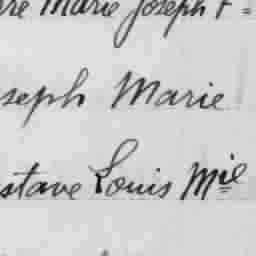 re Marie Joseph F =
seph Marie
stave Louis Mie